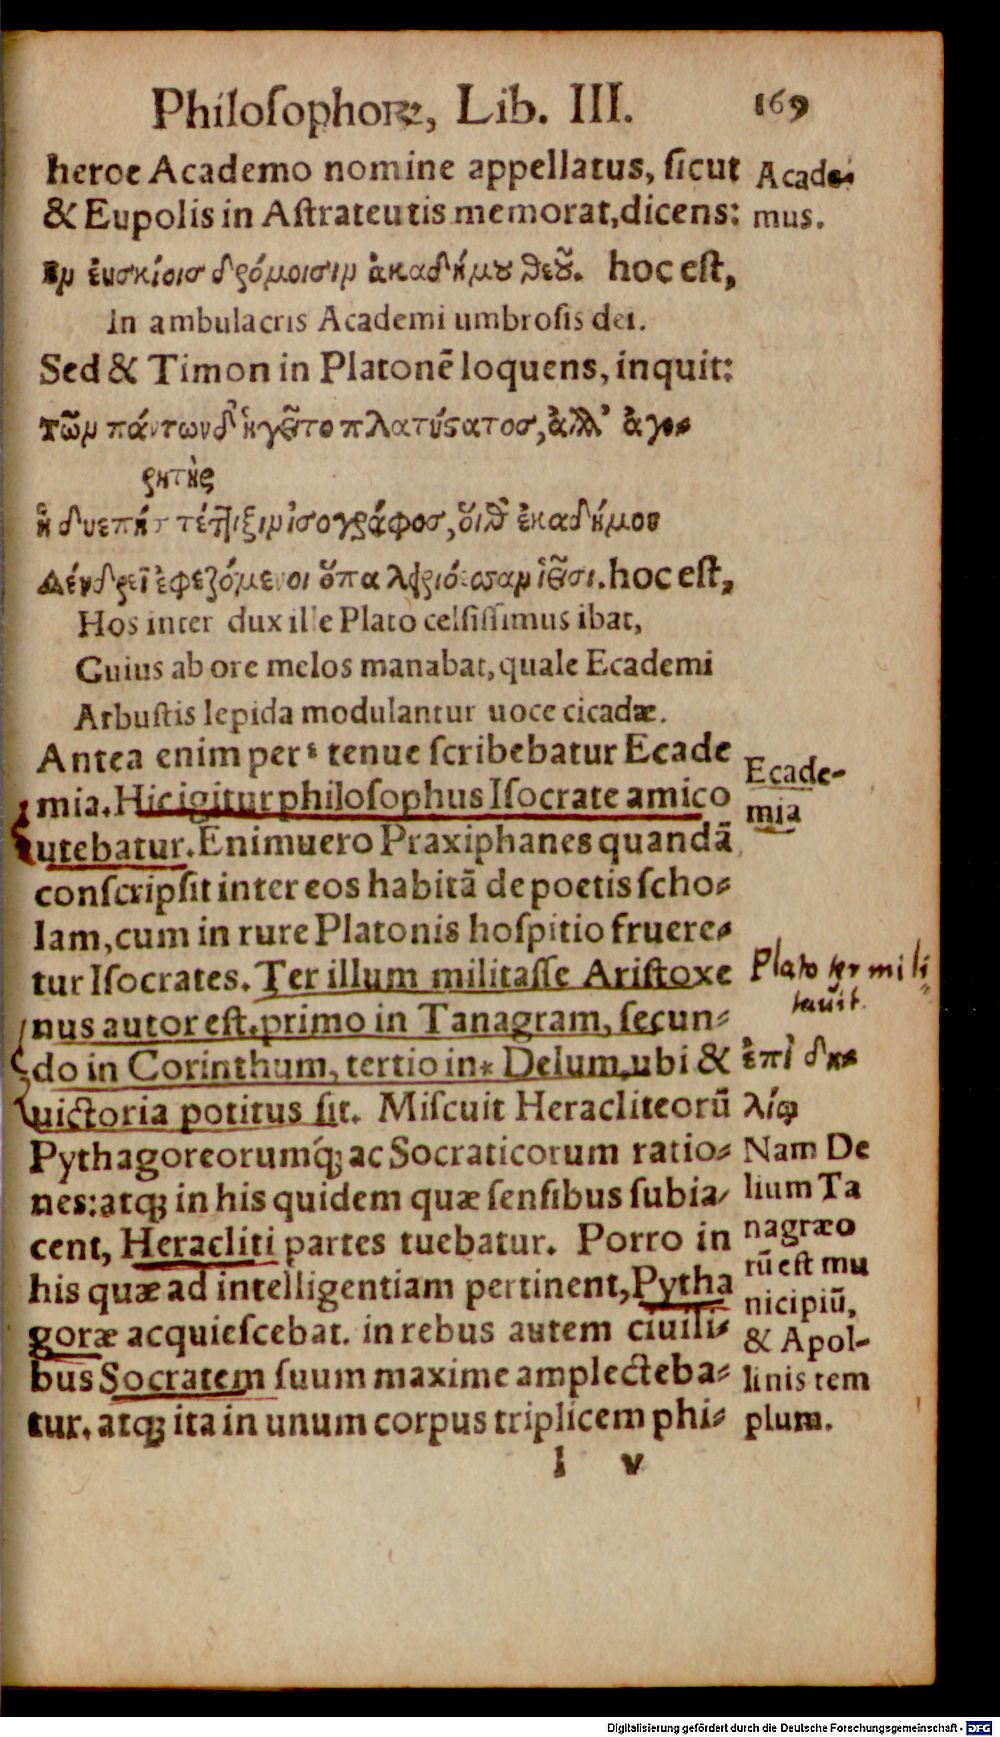 Philoſophorꝝ, Lib. III. 169
heroe Academo nomine appellatus, ſicut
& Eupolis in Aſtrateutis memorat, dicens:
ἐν ἐυσκίοισ δρόμοισιν ἀκαδήμου θεοῦ. hoc eſt,
In ambulacris Academi umbroſis dei.
Sed & Timon in Platonē loquens, inquit:
τῶν πάντων δ' ἡγεῖτο πλατύστατοσ, ἀλλ' ἀγο⸗
ρητὴς
ἡδυεπὴσ τέτ]ιξιν ἰσογράφοσ, ὅιθ' ἑκαδήμου
Δένδρει ἐφεζόμενοι ὄπα λειριόεσσαν ἱεῖσι. hoc eſt,
Hos inter dux ille Plato celſiſſimus ibat,
Cuius ab ore melos manabat, quale Ecademi
Arbuſtis lepida modulantur uoce cicadæ.
Antea enim per ε tenue ſcribebatur Ecade
mia. Hic igitur philoſophus Iſocrate amico
utebatur. Enimuero Praxiphanes quandā
conſcripſit inter eos habitā de poetis ſcho⸗
lam, cum in rure Platonis hoſpitio fruere⸗
tur Iſocrates. Ter illum militaſſe Ariſtoxe
nus autor eſt. primo in Tanagram, ſecun⸗
do in Corinthum, tertio in* Delum, ubi &
uictoria potitus ſit. Miſcuit Heracliteorū
Pythagoreorumq́; ac Socraticorum ratio⸗
nes: atq; in his quidem quæ ſenſibus ſubia⸗
cent, Heracliti partes tuebatur. Porro in
his quæ ad intelligentiam pertinent, Pytha
goræ acquieſcebat. in rebus autem ciuili⸗
bus Socratem ſuum maxime amplecteba⸗
tur. atq; ita in unum corpus triplicem phi⸗
l v
Acade⸗
mus.
Ecade-
mia
Plato ter mili
tauit.
ἐπὶ δη⸗
λίῳ
Nam De
lium Ta
nagræo
rū eſt mu
nicipiū,
& Apol-
linis tem
plum.
Digitalisierung gefördert durch die Deutsche Forschungsgemeinschaft - DFG